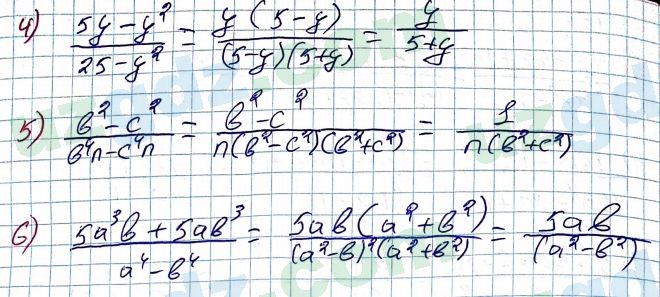 4) (5y - y²)/(25 - y²) = y(5 - y)/((5 - y)(5 + y)) = y/(5 + y)
5) (в² - c²)/(в⁴n - c⁴n) = (в² - c²)/(n(в² - c²)(в² + c²)) = 1/(n(в² + c²))
6) (5a³в + 5aв³)/(a⁴ - в⁴) = 5aв(a² + в²)/((a² - в)²(a² + в²)) = 5aв/(a² - в²)